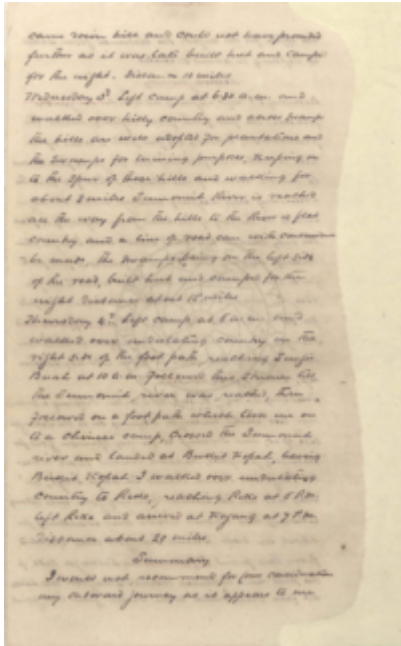 came down hills and could not have proceeded
further as it was late built hut and camped
for the night. Distance 10 miles
Wednesday 3rd Left camp at 6.30 a.m. and
walked over hilly country and across swamp
the hills are well adapted for plantations and
the swamps for mining purposes, keeping on
to the spur of these hills and walking for
about 2 miles River is reached
all the way from the hills to the River is flat
country and a line of road can with convenience
be made, the swamps being on the left side
of the road, built hut and camped for the
night distance about 12 miles
Thursday 4th Left camp at 6 a.m. and
walked over undulating country on the
right side of the foot path, reaching
at 10 a.m. followed this till
the river was reached, then
followed on a foot path which took me on
to a Chinese camp, crossed the
river and landed at Bukit, leaving
Bukit I walked over undulating
country to, reaching at 5 P.M.
left and arrived at at 7 P.M.
Distance about 20 miles.
Summary
I would not recommend for your consideration
my outward journey as it appears to me